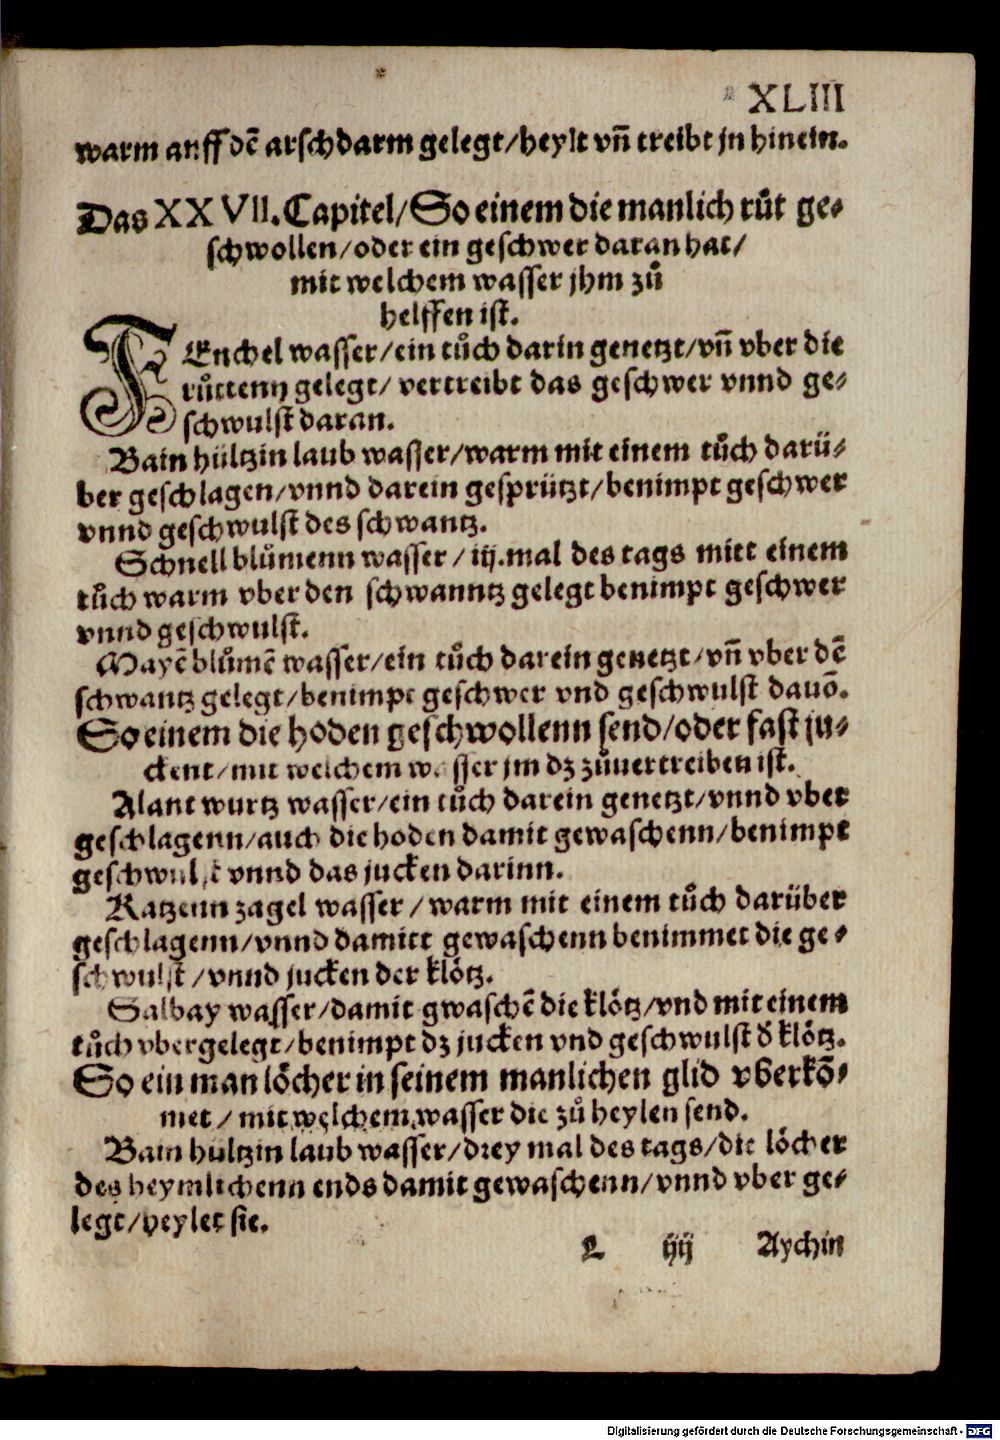 XLIII
warm auff dē arschdarm gelegt/heylt vn̄ treibt jn hinein.
Das XXVII. Capitel/So einem die manlich růt ge⸗
schwollen/oder ein geschwer daran hat/
mit welchem wasser jhm zů
helffen ist.
FEnchel wasser/ein tůch darin genetzt/vn̄ vber die
růttenn gelegt/ vertreibt das geschwer vnnd ge⸗
schwulst daran.
Bain hültzin laub wasser/warm mit einem tůch darü⸗
ber geschlagen/vnnd darein gesprützt/benimpt geschwer
vnnd geschwulst des schwantz.
Schnell blůmenn wasser/iij.mal des tags mitt einem
tůch warm vber den schwanntz gelegt benimpt geschwer
vnnd geschwulst.
Mayē blůmē wasser/ein tůch darein genetzt/vn̄ vber dē
schwantz gelegt/benimpt geschwer vnd geschwulst dauō.
So einem die hoden geschwollenn send/oder fast ju⸗
ckent/mit welchem wasser jm dz zůuertreiben ist.
Alant wurtz wasser/ein tůch darein genetzt/vnnd vber
geschlagenn/auch die hoden damit gewaschenn/benimpt
geschwulst vnnd das jucken darinn.
Katzenn zagel wasser/warm mit einem tůch darüber
geschlagenn/vnnd damitt gewaschenn benimmet die ge⸗
schwulst/vnnd jucken der klötz.
Salbay wasser/damit gwaschē die klötz/vnd mit einem
tůch vbergelegt/benimpt dz jucken vnd geschwulst ð klötz.
So ein man löcher in seinem manlichen glid vberkō⸗
met/mit welchem wasser die zů heylen send.
Bain hültzin laub wasser/drey mal des tags/die löcher
des heymlichenn ends damit gewaschenn/vnnd vber ge⸗
legt/heylet sie.
L iij Aychin
Digitalisierung gefördert durch die Deutsche Forschungsgemeinschaft - DFG